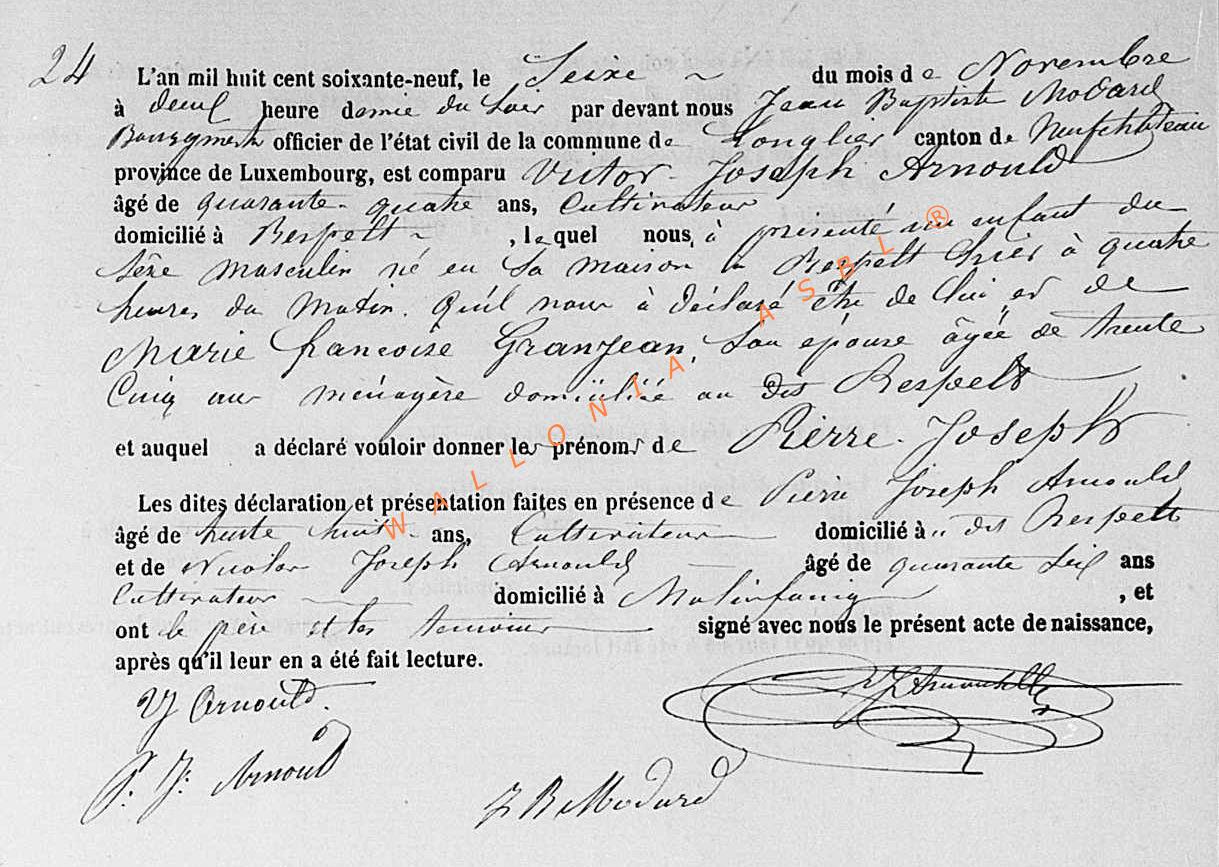 24 L'an mil huit cent soixante-neuf, le Seize du mois de Novembre
à deux heure demie du Soir par devant nous Jean Baptiste Modard
Bourgmestre officier de l'état civil de la commune de Longlier canton de Neufchâteau
province de Luxembourg, est comparu Victor Joseph Arnould
âgé de quarante quatre ans, Cultivateur
domicilié à Respelt, lequel nous, à présenté un enfant du
sèxe masculin né en sa maison à Respelt hier à quatre
heures du matin. qu'il nous à déclaré être de lui et de
Marie françoise Granjean, son épouse âgée de trente
Cinq ans ménagère domiciliée au dit Respelt
et auquel a déclaré vouloir donner les prénoms de Pierre-Joseph
Les dites déclaration et présentation faites en présence de Pierre Joseph Arnould
âgé de trente huit ans, Cultivateur domicilié à dit Respelt
et de Nicolas Joseph Arnould âgé de quarante six ans
Cultivateur domicilié à Molinfaing, et
ont le père et les temoins signé avec nous le présent acte de naissance,
après qu'il leur en a été fait lecture.
VJ Arnould. NJ Arnould
P. J. Arnould
J B Modard
WALLONIA ASBL ®